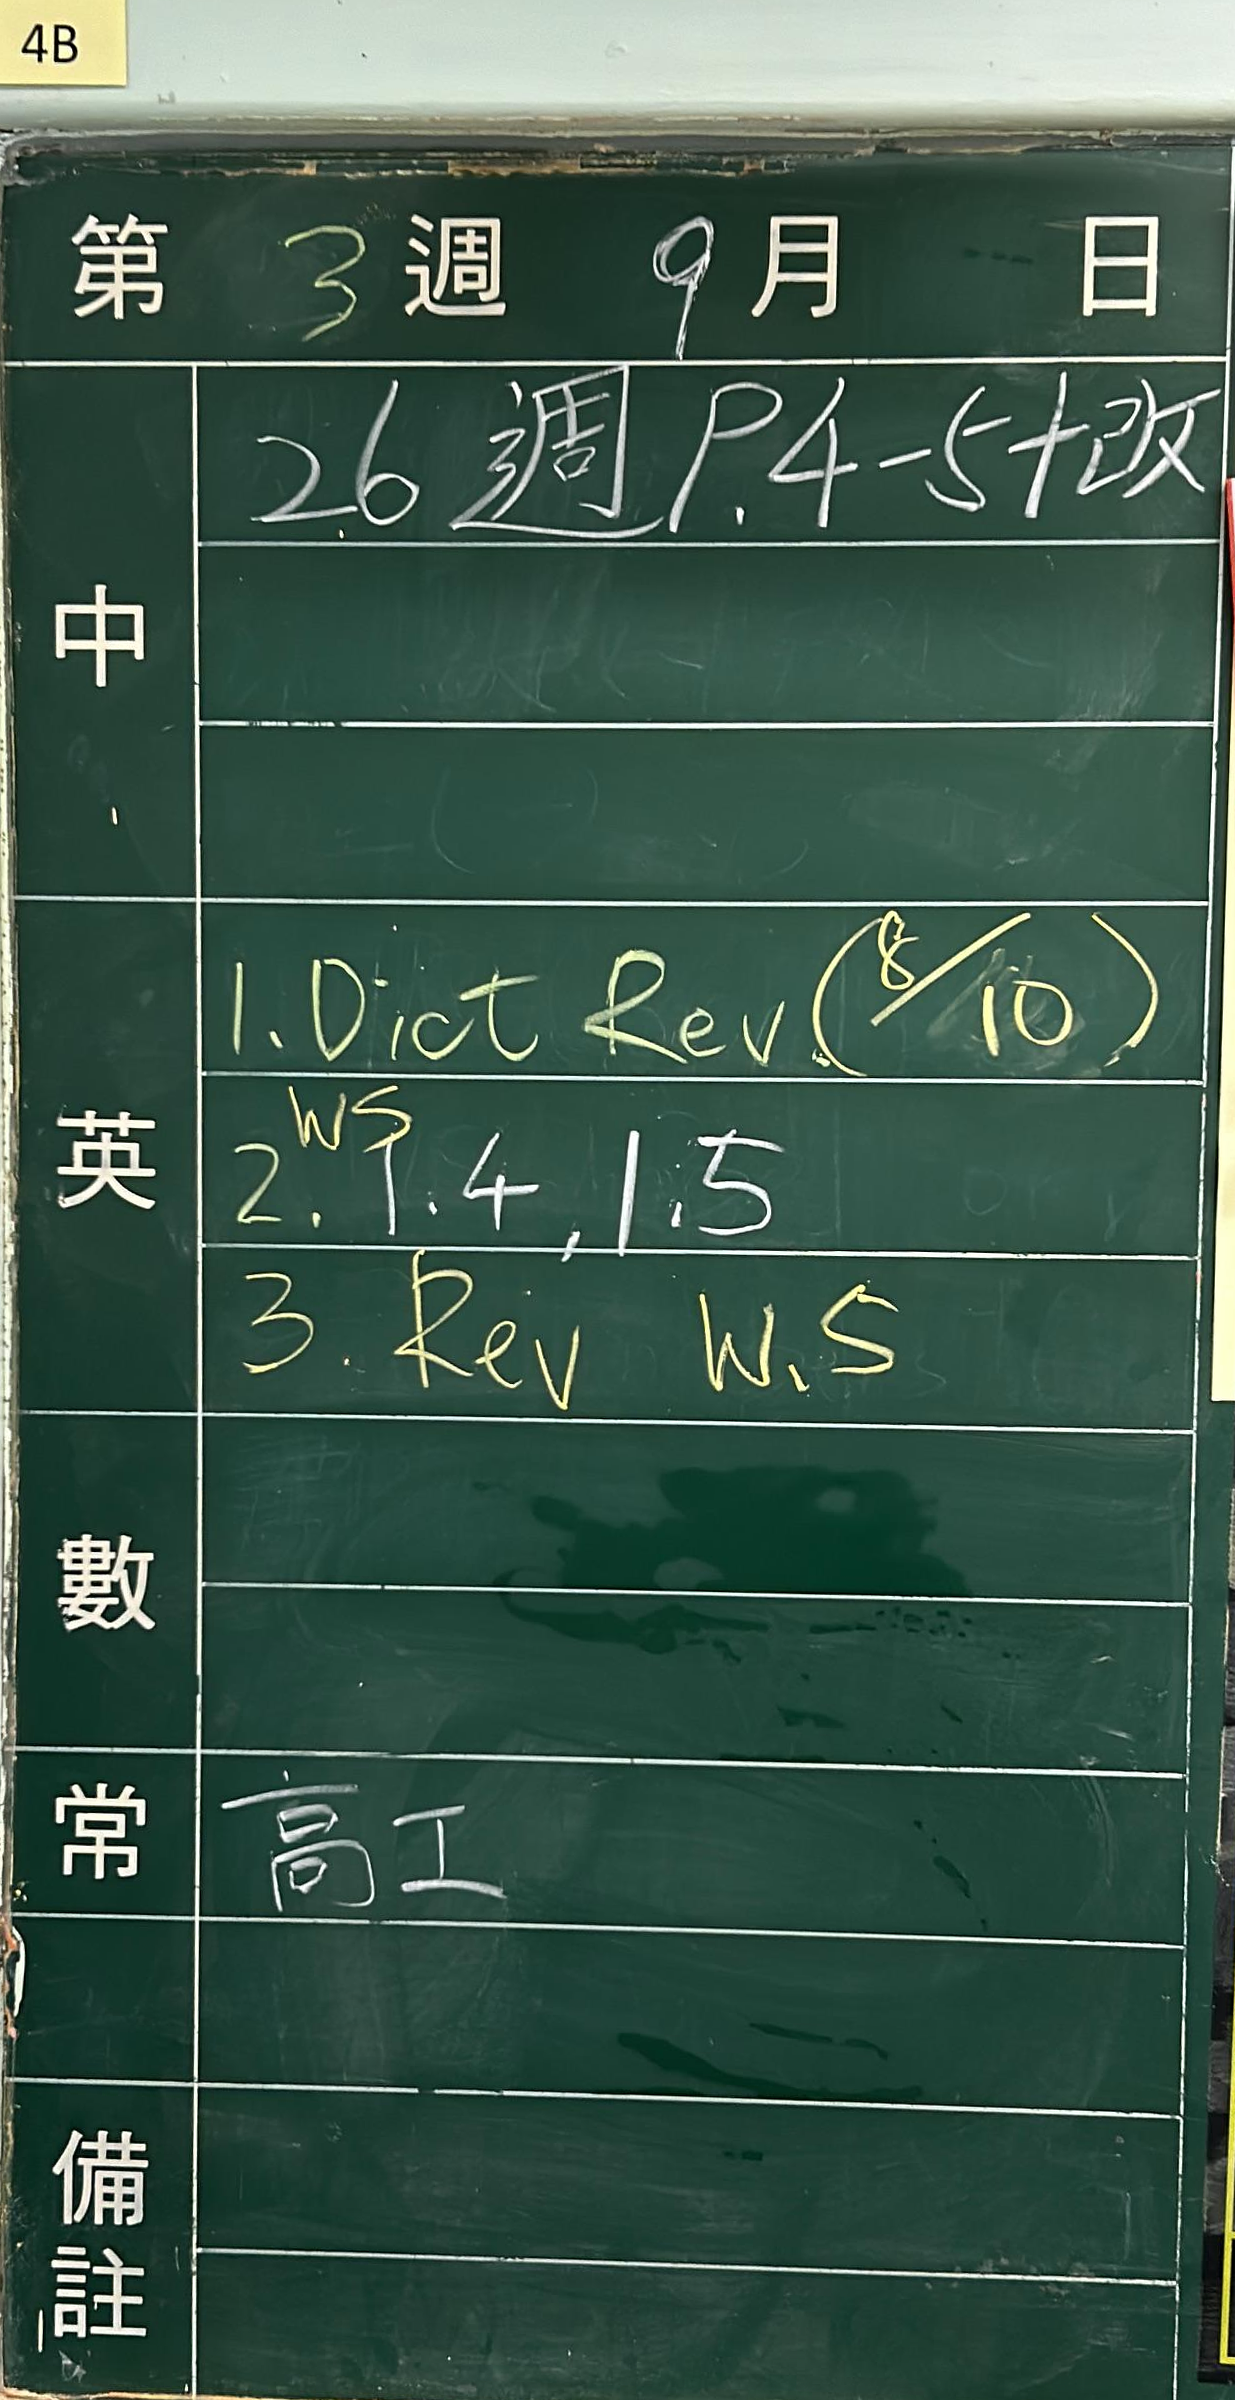 4B
第 3 週 9 月 日
中
26週 P.4-5+改
英
1. Dict Rev (8/10)
2. WS 1.4, 1.5
3. Rev W.S
數
常
高工
備註